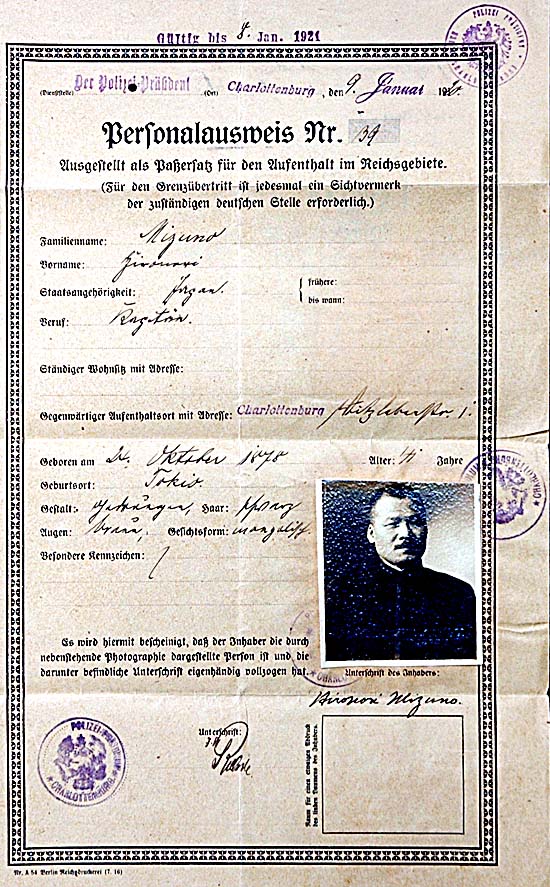 Gültig bis 8. Jan. 1921
(Dienststelle) Der Polizei-Präsident (Ort) Charlottenburg, den 9. Januar 1920
Personalausweis Nr. 39
Ausgestellt als Paßersatz für den Aufenthalt im Reichsgebiete.
(Für den Grenzübertritt ist jedesmal ein Sichtvermerk
der zuständigen deutschen Stelle erforderlich.)
Familienname: Mizuno
Vorname: Hironori
Staatsangehörigkeit: Japan. frühere:
bis wann:
Beruf: Kapitän.
Ständiger Wohnsitz mit Adresse:
Gegenwärtiger Aufenthaltsort mit Adresse: Charlottenburg
Geboren am 2. Oktober 1878 Alter: 41 Jahre
Geburtsort: Tokio.
Gestalt: gedrungen, Haar: schwarz
Augen: braun, Gesichtsform: mongolisch.
Besondere Kennzeichen:
Es wird hiermit bescheinigt, daß der Inhaber die durch
nebenstehende Photographie dargestellte Person ist und die
darunter befindliche Unterschrift eigenhändig vollzogen hat.
Unterschrift des Inhabers:
Hironori Mizuno.
Unterschrift:
Raum für einen etwaigen Abdruck
des linken Daumens des Inhabers.
POLIZEI-PRÄSIDIUM
CHARLOTTENBURG
Nr. A 54 Berlin Reichsdruckerei (7. 16)